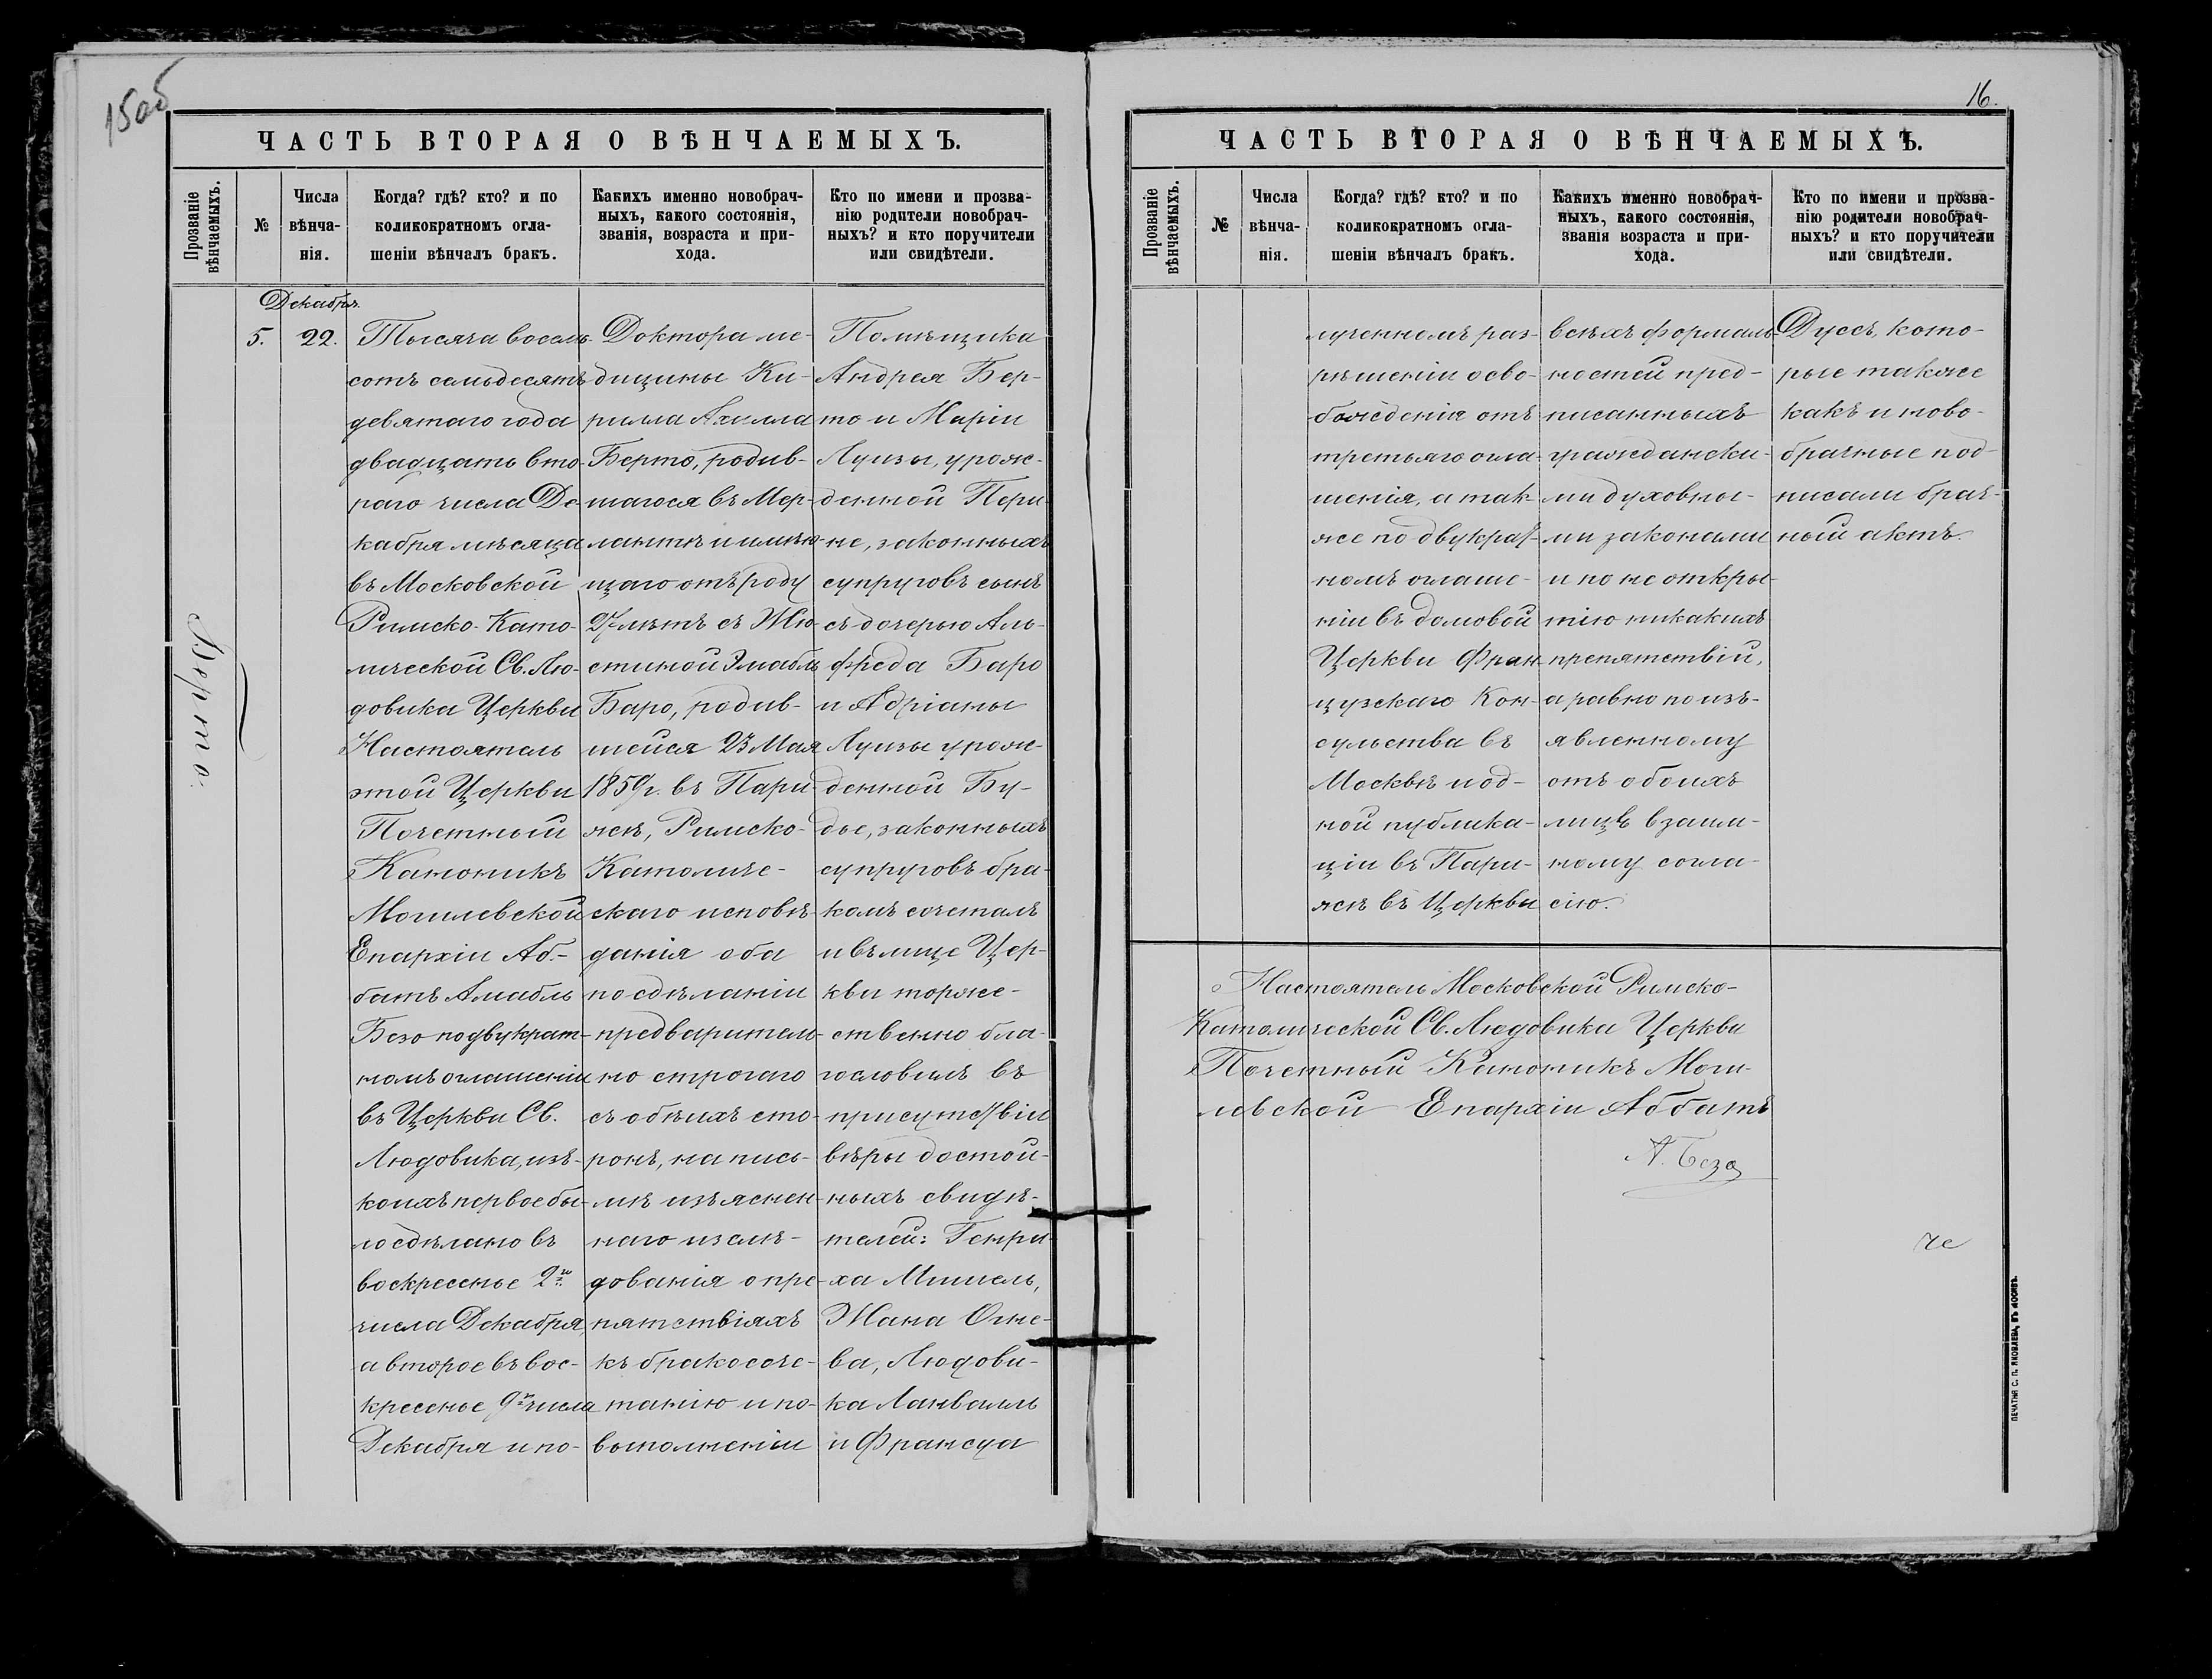 15об
ЧАСТЬ ВТОРАЯ О ВѢНЧАЕМЫХЪ.
Прозваніе
вѣнчаемыхъ.
№
Числа
вѣнча-
нія.
Когда? гдѣ? кто? и по
коликократномъ огла-
шеніи вѣнчалъ бракъ.
Какихъ именно новобрач-
ныхъ, какого состоянія,
званія, возраста и при-
хода.
Кто по имени и прозва-
нію родители новобрач-
ныхъ? и кто поручители
или свидѣтели.
Берто.
5.
Декабря.
22.
Тысяча восемь-
сотъ семьдесятъ
девятаго года
двадцать вто-
раго числа Де-
кабря мѣсяца
въ Московской
Римско-Като-
лической Св. Лю-
довика Церкви
Настоятель
этой Церкви
Почетный
Каноникъ
Могилевской
Епархіи Аб-
батъ Амабль
Безо по двукрат-
номъ оглашеніи
въ Церкви Св.
Людовика, изъ
коихъ первое бы-
ло сдѣлано въ
воскресенье 2го
числа Декабря
а второе въ вос-
кресенье 9го числа
Декабря и по-
Доктора ме-
дицины Ки-
рилла Ахилла
Берто, родив-
шагося въ Мер-
лантѣ и имѣю-
щаго отъ роду
27 лѣтъ съ Жю-
стиной Эмабль
Баро, родив-
шейся 23 Мая
1859 г. въ Пари-
жѣ, Римско-
Католиче-
скаго исповѣ-
данія оба
по сдѣланіи
предваритель-
но строгаго
съ обѣихъ сто-
ронъ, на пись-
мѣ изъяснен-
наго изслѣ-
дованія о пре-
пятствіяхъ
къ бракосоче-
танію и по
выполненіи
Помѣщика
Андрея Бер-
то и Маріи
Луизы, урож-
денной Пери-
не, законныхъ
супруговъ сынъ
съ дочерью Аль-
фреда Баро
и Адріаны
Луизы урож-
денной Бу-
дье, законныхъ
супруговъ бра-
комъ сочеталъ
и въ лице Цер-
кви торже-
ственно бла-
гословилъ въ
присутствіи
вѣры достой-
ныхъ свидѣ-
телей: Генри-
ха Мишель,
Жана Огне-
ва, Людови-
ка Ланваиль
и Франсуа
16.
ЧАСТЬ ВТОРАЯ О ВѢНЧАЕМЫХЪ.
Прозваніе
вѣнчаемыхъ.
№
Числа
вѣнча-
нія.
Когда? гдѣ? кто? и по
коликократномъ огла-
шеніи вѣнчалъ бракъ.
Какихъ именно новобрач-
ныхъ, какого состоянія,
званія возраста и при-
хода.
Кто по имени и прозва-
нію родители новобрач-
ныхъ? и кто поручители
или свидѣтели.
лученномъ раз-
рѣшеніи осво-
божденія отъ
третьяго огла-
шенія, а так-
же по двукрат-
номъ оглаше-
ніи въ домовой
Церкви Фран-
цузскаго Кон-
сульства въ
Москвѣ и од-
ной публика-
ціи въ Пари-
жѣ въ Церкви
всѣхъ формаль-
ностей пред-
писанныхъ
граждански-
ми духовны-
ми законами
и по не откры-
тію никакихъ
препятствій,
а равно по изъ-
явленному
отъ обоихъ
лицъ взаим-
ному согла-
сію.
Дуссъ, кото-
рые также
какъ и ново-
брачные под-
писали брач-
ный актъ.
Настоятель Московской Римско-
Католической Св. Людовика Церкви
Почетный Каноникъ Моги-
левской Епархіи Аббатъ
А. Безо
ПЕЧАТНЯ С. П. ЯКОВЛЕВА, ВЪ МОСКВѢ.